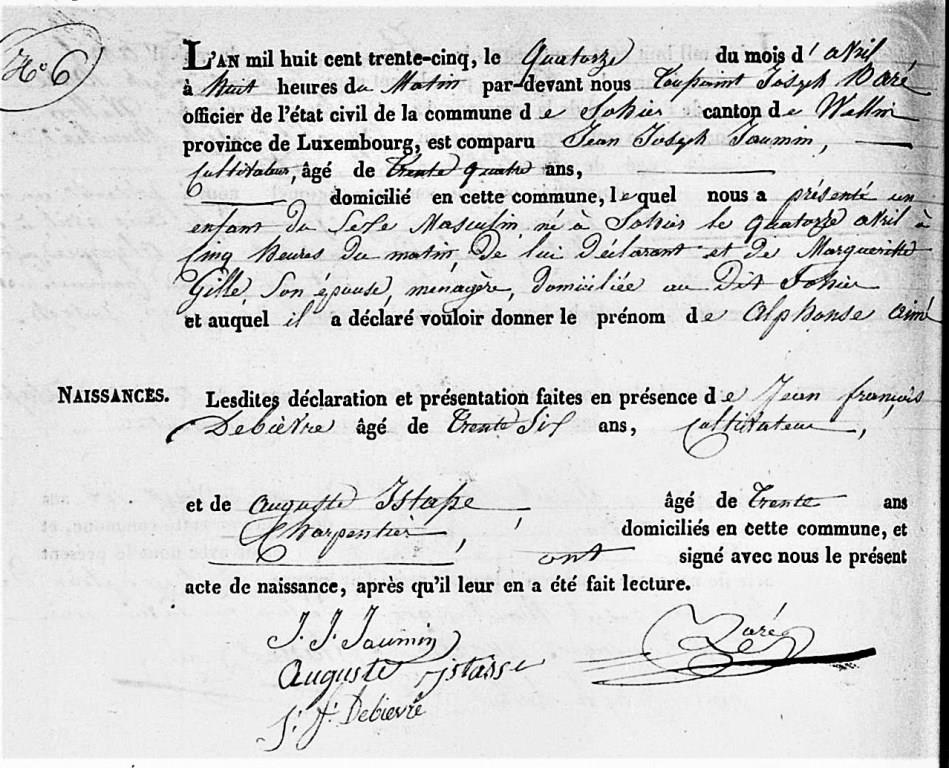 N.º 6
L'AN mil huit cent trente-cinq, le quatorze du mois d'avril
à huit heures du matin par-devant nous Toussaint Joseph Daré
officier de l'état civil de la commune de Sohier canton de Wellin
province de Luxembourg, est comparu Jean Joseph Jaumin,
Cultivateur, âgé de trente quatre ans,
domicilié en cette commune, lequel nous a présenté un
enfant du sexe Masculin né à Sohier le quatorze avril à
cinq heures du matin, de lui déclarant et de Margueritte
Gille, son épouse, ménagère, domiciliée au dit Sohier
et auquel il a déclaré vouloir donner le prénom de Alphonse aimé
NAISSANCES. Lesdites déclaration et présentation faites en présence de Jean françois
Debièvre âgé de trente six ans, Cultivateur,
et de auguste Istasse âgé de trente ans
Charpentier, domiciliés en cette commune, et
ont signé avec nous le présent
acte de naissance, après qu'il leur en a été fait lecture.
J. J. Jaumin
Daré
Auguste istasse
J. f. Debievre